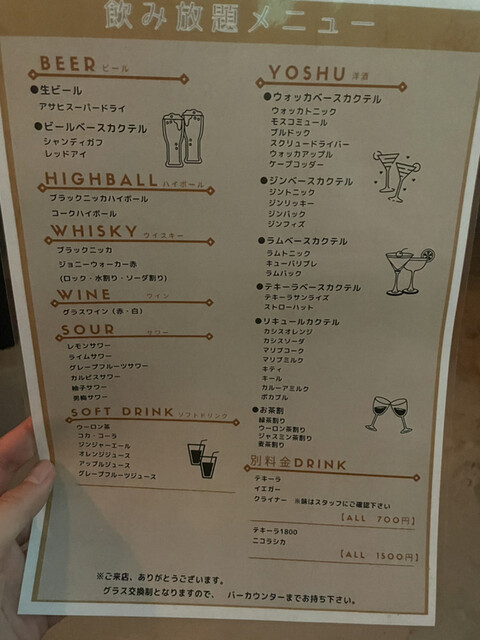 飲み放題メニュー
BEER ビール
●生ビール
アサヒスーパードライ
●ビールベースカクテル
シャンディガフ
レッドアイ
HIGHBALL ハイボール
ブラックニッカハイボール
コークハイボール
WHISKY ウイスキー
ブラックニッカ
ジョニーウォーカー赤
(ロック・水割り・ソーダ割り)
WINE ワイン
グラスワイン（赤・白）
SOUR サワー
レモンサワー
ライムサワー
グレープフルーツサワー
カルピスサワー
柚子サワー
男梅サワー
SOFT DRINK ソフトドリンク
ウーロン茶
コカ・コーラ
ジンジャーエール
オレンジジュース
アップルジュース
グレープフルーツジュース
YOSHU 洋酒
●ウォッカベースカクテル
ウォッカトニック
モスコミュール
ブルドック
スクリュードライバー
ウォッカアップル
ケープコッダー
●ジンベースカクテル
ジントニック
ジンリッキー
ジンバック
ジンフィズ
●ラムベースカクテル
ラムトニック
キューバリブレ
ラムバック
●テキーラベースカクテル
テキーラサンライズ
ストローハット
●リキュールカクテル
カシスオレンジ
カシスソーダ
マリブコーク
マリブミルク
キティ
キール
カルーアミルク
ボカブル
●お茶割
緑茶割り
ウーロン茶割り
ジャスミン茶割り
麦茶割り
別料金DRINK
テキーラ
イエガー
クライナー ※味はスタッフにご確認下さい
【ALL 700円】
テキーラ1800
ニコラシカ
【ALL 1500円】
※ご来店、ありがとうございます。
グラス交換制となりますので、 バーカウンターまでお持ち下さい。